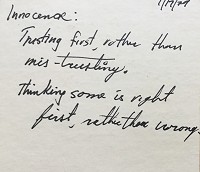 1/17/24
Innocence:
Trusting first, rather than
mis-trusting.
Thinking some is right
first, rather than wrong.